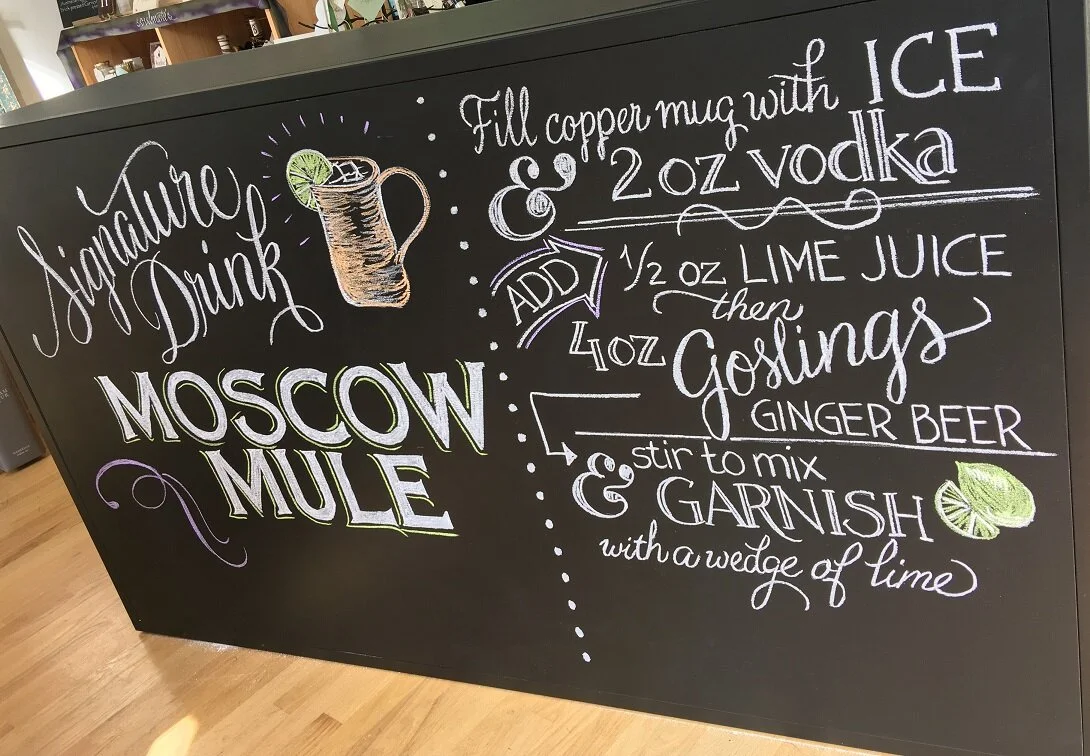 Signature
Drink
MOSCOW
MULE
Fill copper mug with ICE
& 2 oz vodka
ADD 1/2 oz LIME JUICE
then
4oz Goslings
GINGER BEER
stir to mix
& GARNISH
with a wedge of lime